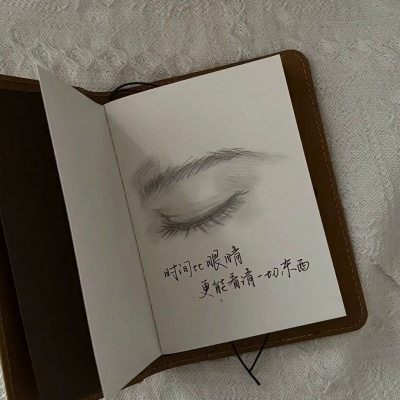 时间比眼睛
更能看清一切东西